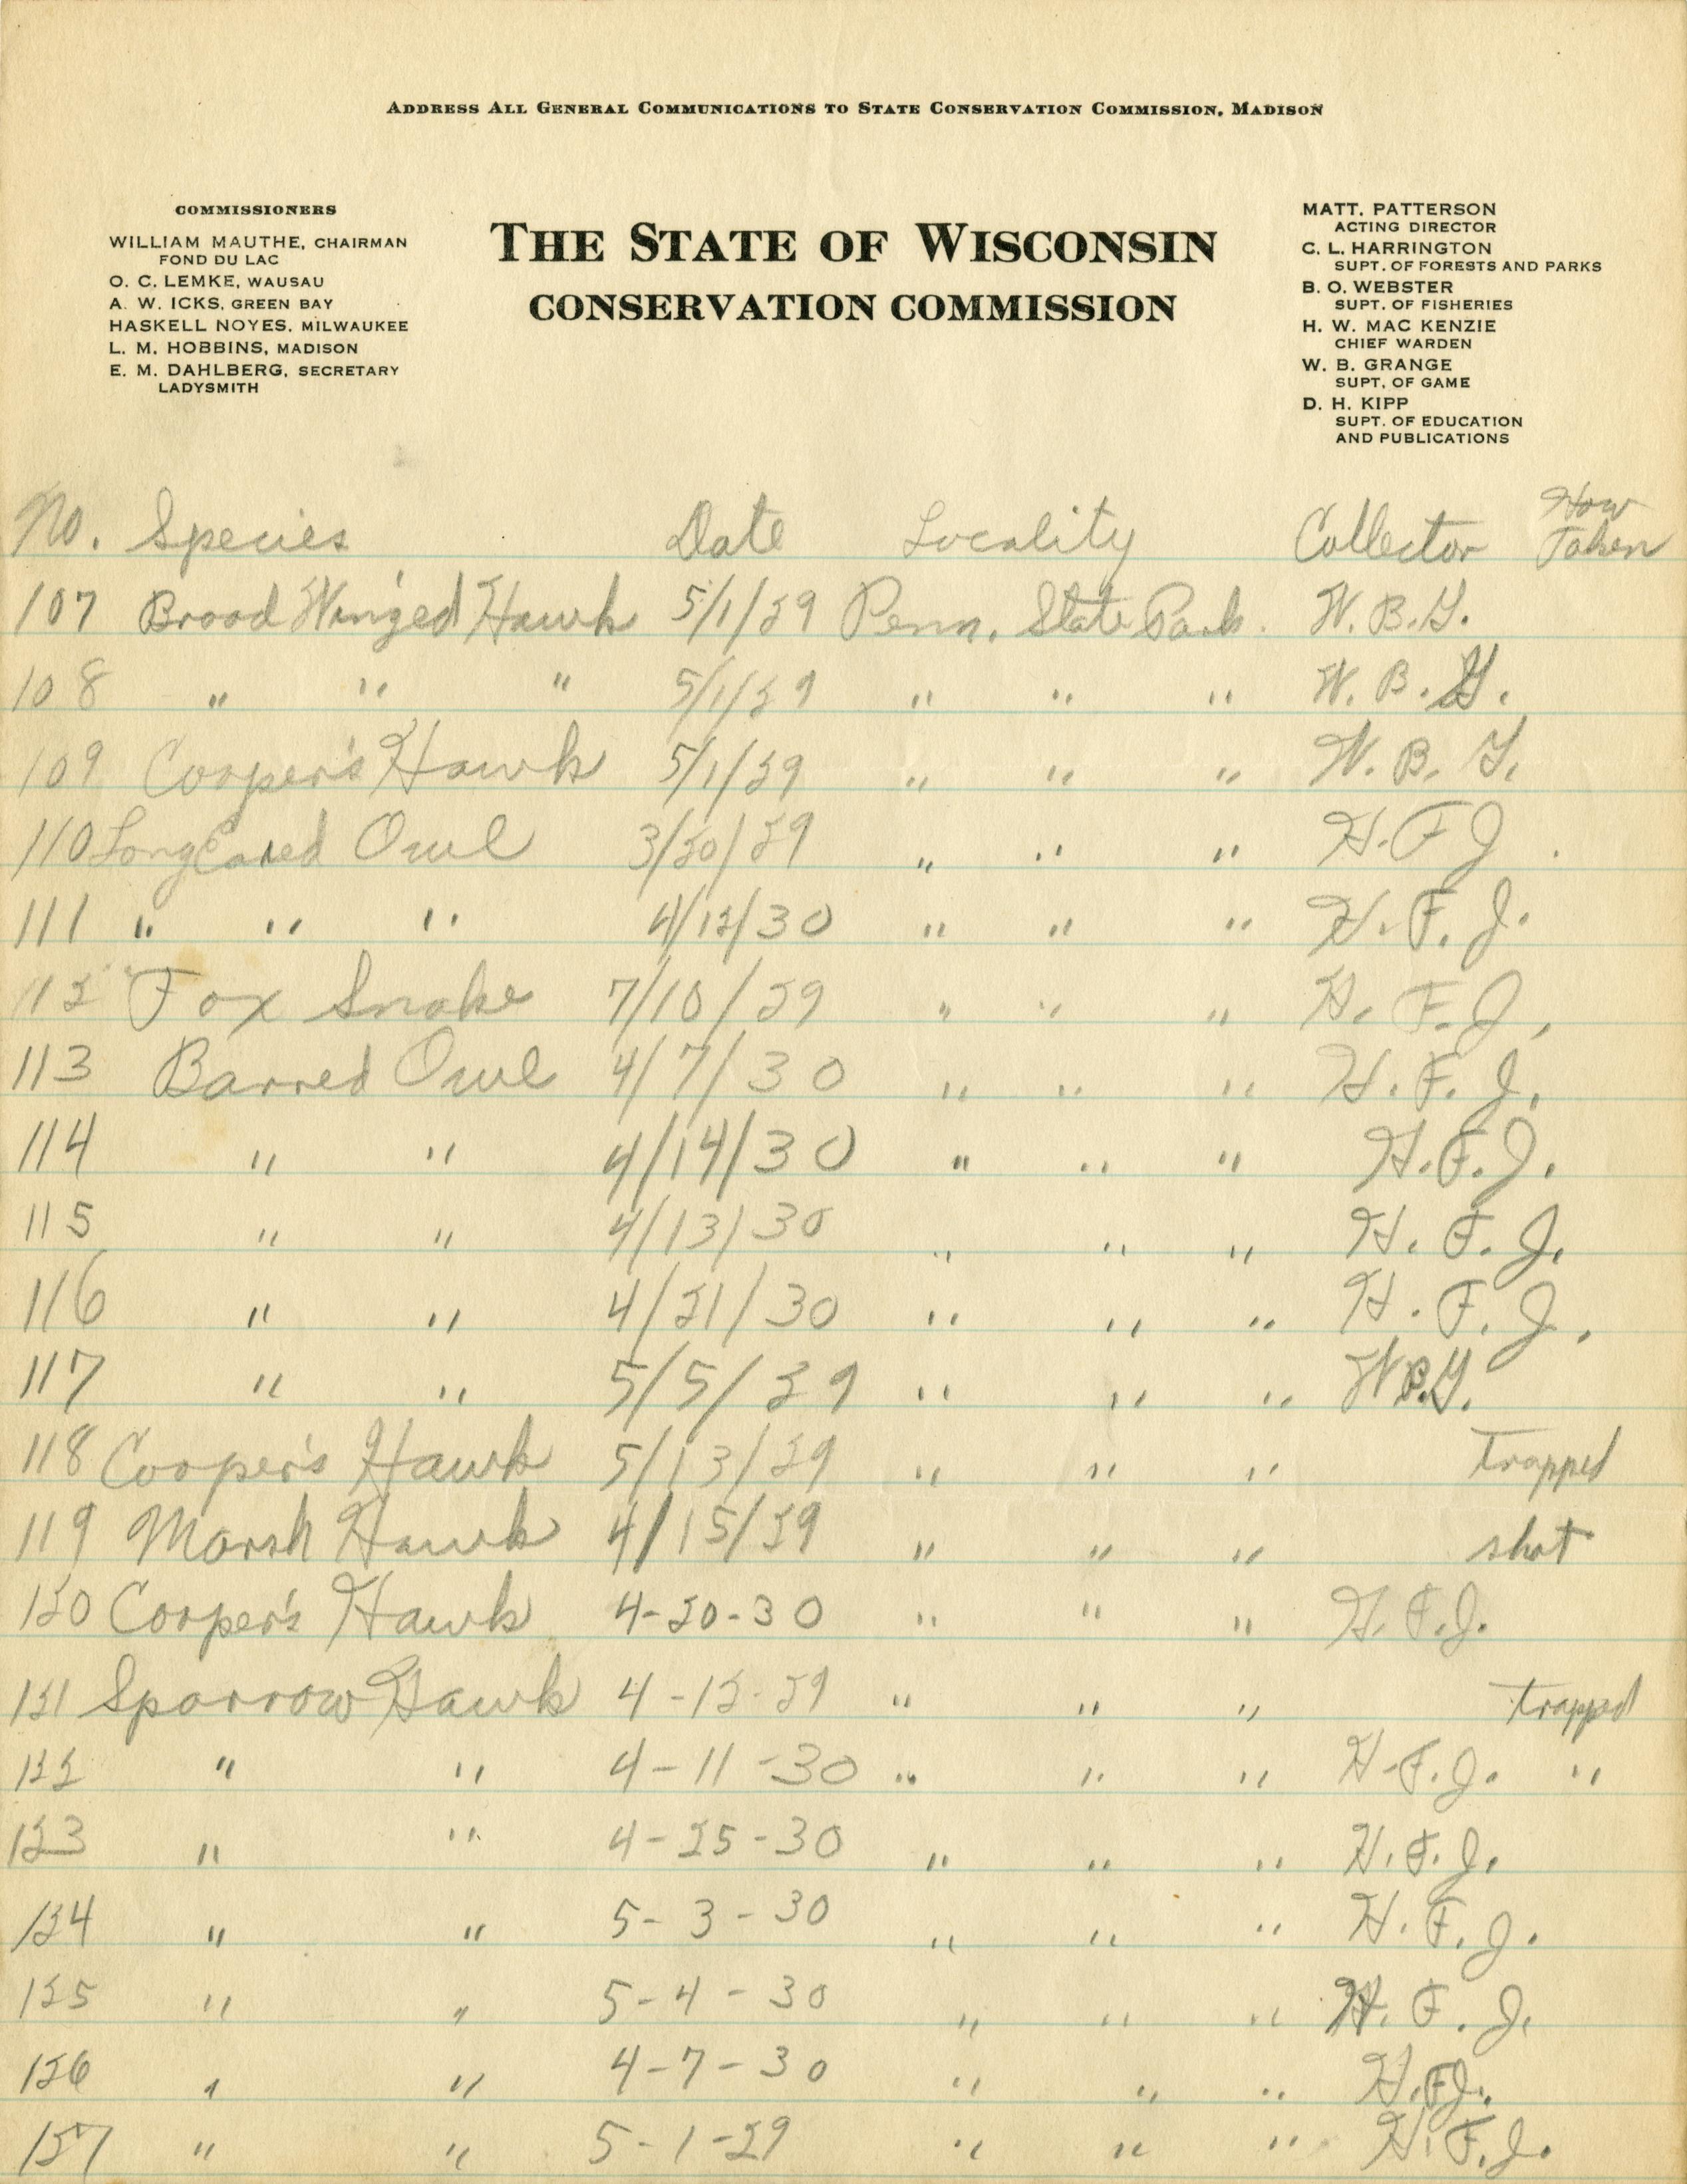 ADDRESS ALL GENERAL COMMUNICATIONS TO STATE CONSERVATION COMMISSION, MADISON
COMMISSIONERS
WILLIAM MAUTHE, CHAIRMAN
FOND DU LAC
O. C. LEMKE, WAUSAU
A. W. ICKS, GREEN BAY
HASKELL NOYES, MILWAUKEE
L. M. HOBBINS, MADISON
E. M. DAHLBERG, SECRETARY
LADYSMITH
THE STATE OF WISCONSIN
CONSERVATION COMMISSION
MATT. PATTERSON
ACTING DIRECTOR
C. L. HARRINGTON
SUPT. OF FORESTS AND PARKS
B. O. WEBSTER
SUPT. OF FISHERIES
H. W. MAC KENZIE
CHIEF WARDEN
W. B. GRANGE
SUPT. OF GAME
D. H. KIPP
SUPT. OF EDUCATION
AND PUBLICATIONS
No. Species Date Locality Collector How Taken
107 Broad Winged Hawk 5/1/29 Penn. State Park. W. B. G.
108 " " " 5/1/29 " " " W. B. G.
109 Cooper's Hawk 5/1/29 " " " W. B. G.
110 Long Eared Owl 3/20/29 " " " H. F J
111 " " " 4/12/30 " " " H. F. J.
112 Fox Snake 7/10/29 " " " H. F. J.
113 Barred Owl 4/7/30 " " " H. F. J.
114 " " 4/14/30 " " " H. F. J.
115 " " 4/13/30 " " " H. F. J.
116 " " 4/21/30 " " " H. F. J.
117 " " 5/5/29 " " " W B. G.
118 Cooper's Hawk 5/13/29 " " " trapped
119 Marsh Hawk 4/15/29 " " " shot
120 Cooper's Hawk 4-20-30 " " " H. F. J.
121 Sparrow Hawk 4-12-29 " " " trapped
122 " " 4-11-30 " " " H. F. J. "
123 " " 4-25-30 " " " H. F. J.
124 " " 5-3-30 " " " H. F. J.
125 " " 5-4-30 " " " H. F. J.
126 " " 4-7-30 " " " H. F. J.
127 " " 5-1-29 " " " H. F. J.